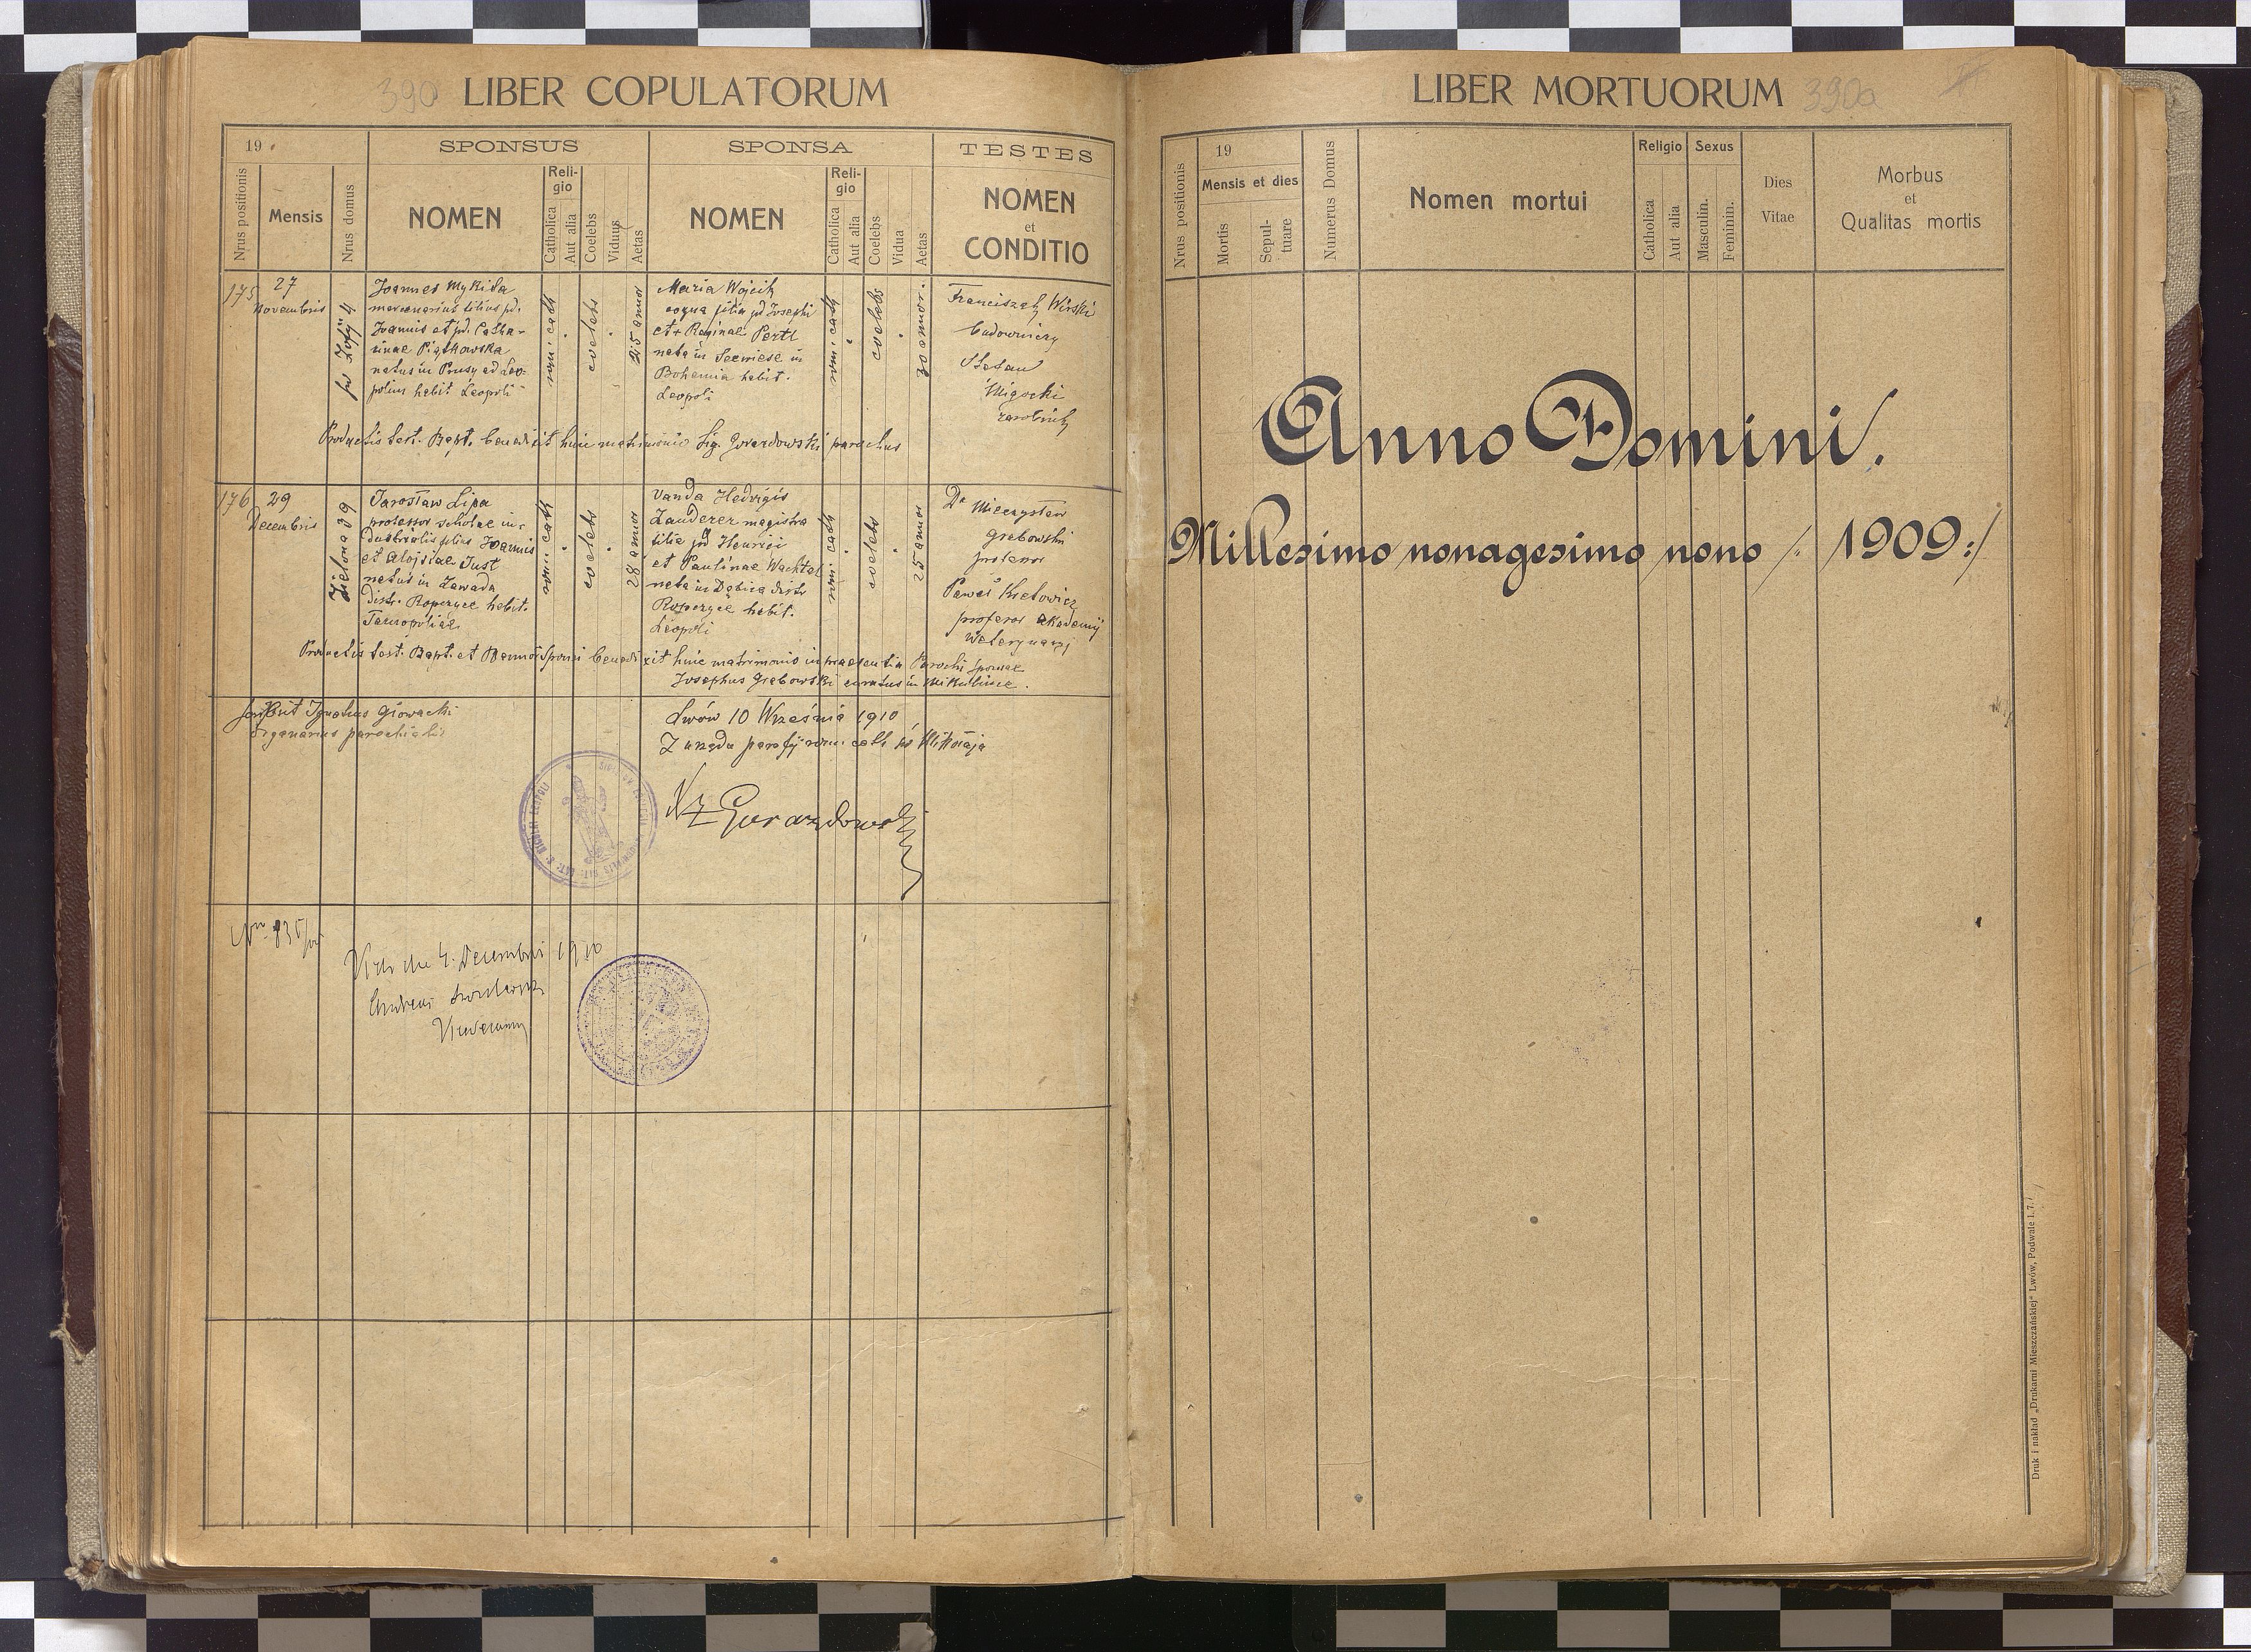 390 LIBER COPULATORUM
19
SPONSUS
SPONSA
TESTES
Nrus positionis
Mensis
Nrus domus
NOMEN
Reli-
gio
Catholica
Aut alia
Coelebs
Viduus
Aetas
NOMEN
Reli-
gio
Catholica
Aut alia
Coelebs
Vidua
Aetas
NOMEN
et
CONDITIO
175
27
Novembris
św Zofij 4
Joannes Mykita
mercenarius filius pd.
Joannis et pd. Catha-
rinae Piątkowska
natus in Prusy ad Leo-
polim habit Leopoli
rom. cath
coelebs
25 annor
Maria Wojcik
coqua filia pd Josephi
et + Reginae Pertl
nata in Seewiese in
Bohemia habit.
Leopoli
rom. cath
coelebs
30 annor.
Franciszek Wirski
budowniczy
Stefan
Migocki
zarobnik
Productis test. Bapt. benedixit huic matrimonio Sig. Gorazdowski parochus
176
29
Decembris
Zielona 39
Jarosław Lipa
professor scholae in-
dustrialis filius Joannis
et Alojsiae Just
natus in Zawada
distr. Ropczyce habit.
Tarnopoliae
rom. cath
coelebs
28 annor
Vanda Hedvigis
Zauderer magistra
filia pd Henrici
et Paulinae Wachtel
nata in Dębica distr
Ropczyce habit.
Leopoli
rom. cath
coelebs
25 annor
Dr Mieczysław
Grabowski
profesor
Paweł Kretowicz
profesor akademij
weterynarji
Productis test. Bapt. et Bannor Sponsi benedixit huic matrimonio in praesentia Parochi Sponsae
Josephus Grabowski curatus in Mikulince.
scripsit Ignatius Głowacki
organarius parochialis
Lwów 10 Września 1910
Z urzędu parafij rzym. cath św Mikołaja
XZ Gorazdowski
Nro 835
Vidi die 4. Decembris 1910
LIBER MORTUORUM 390a
Nrus positionis
19
Mensis et dies
Mortis
Sepul-
tuare
Numerus Domus
Nomen mortui
Religio
Catholica
Aut alia
Sexus
Masculin.
Feminin.
Dies
Vitae
Morbus
et
Qualitas mortis
Anno Domini.
Millesimo nonagesimo nono /: 1909:/
Druk i nakład „Drukarni Mieszczańskiej" Lwów, Podwale l. 7.